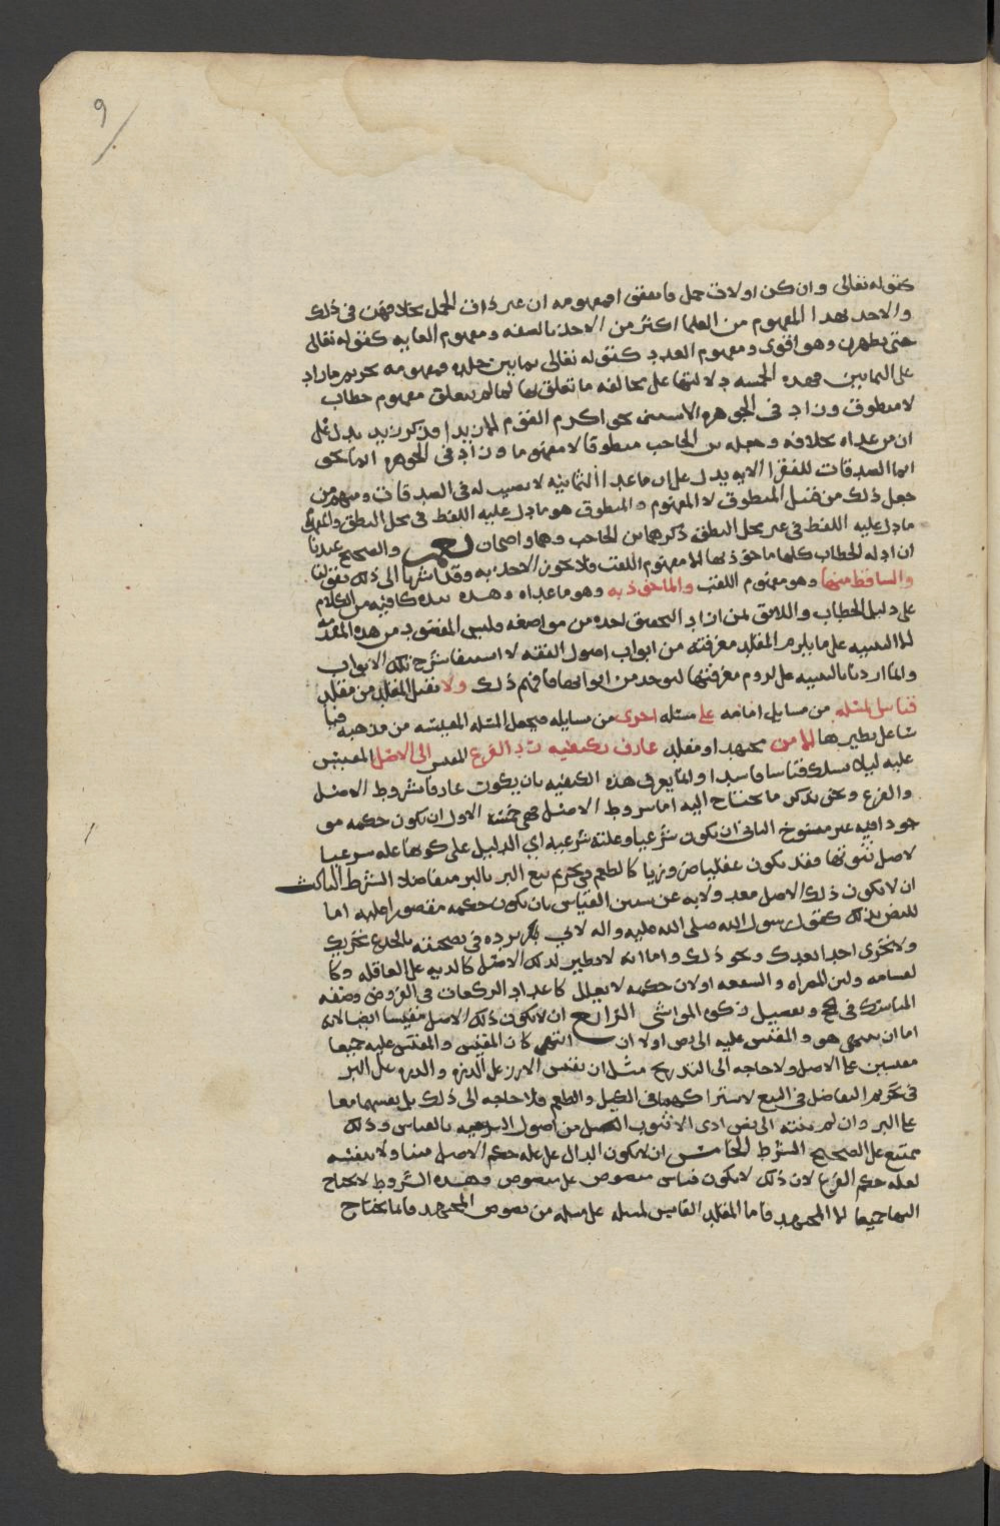 ٩
كقوله تعالى وان كن اولات حمل فانفقوا فمفهومه ان غير ذات الحمل بخلافهن في ذلك
والاخذ بهذا المفهوم من العلما اكثر من الاخذ بالصفه ومفهوم الغايه كقوله تعالى
حتى يطهرن وهو اقوى ومفهوم العدد كقوله تعالى ثمانين جلده فمفهومه تحريم ما زاد
على الثمانين فهذه الخمسه دلالتها على مخالفه ما تعلق بها لما لم يتعلق مفهوم خطاب
لا منطوق وزاد في الجوهره الاستثنى نحو اكرم القوم الا زيدا فذكر زيد يدل على
ان من عداه بخلافه وجعله بن الحاجب منطوقا لا مفهوما وزاد في الجوهره انما نحو
انما الصدقات للفقرا الايه يدل على ان ما عدا الثمانيه لا نصيب له في الصدقات ومنهم من
جعل ذلك من قبيل المنطوق لا المفهوم والمنطوق هو ما دل عليه اللفظ في محل النطق والمفهوم
ما دل عليه اللفظ في غير محل النطق ذكرهما بن الحاجب وهما واضحان نعم والصحيح عندنا
ان ادله الخطاب كلها ماخوذ بها الا مفهوم اللقب فلا يجوز الاخذ به وقد اشرنا الى ذلك بقولنا
والساقط منها وهو مفهوم اللقب والماخوذ به وهو ما عداه وهذه نبذه كافيه من الكلام
على دليل الخطاب واللايق لمن اراد التحقيق اخذه من مواضعه وليس المقصود من هذه المقدمه
الا التنبيه على ما يلزم المقلد معرفته من ابواب اصول الفقه لا استيفا شرح تلك الابواب
وانما اردنا بالتنبيه على لزوم معرفتها ليوخذ من ابوابها فافهم ذلك ولا يقبل المقلد من مقلد
قياس لمسئله من مسايل امامه على مسئله اخرى من مسايله فيجعل المسئله المقيسه من مذهبه
على نظيرها الا من مجتهد او مقلد عارف بكيفيه رد الفرع المقيس الى الاصل المقيس
عليه ليلا يسلك قياسا فاسدا وانما يعرف هذه الكيفيه بان يكون عارفا بشروط الاصل
والفرع ونحن نذكر ما يحتاج اليه اما شروط الاصل فهي خمسه الاول ان يكون حكمه مو
جودا فيه غير منسوخ الثاني ان يكون شرعيا وعلته شرعيه اي الدليل على كونها عله شرعيا
لاصل ثبوتها فقد يكون عقليا ضروريا كالطعم في تحريم بيع البر بالبر متفاضلا الشرط الثالث
ان لا يكون ذلك الاصل معدولا به عن سنن القياس بان يكون حكمه مقصورا عليه اما
للنص بذلك كقول رسول الله صلى الله عليه واله لابي برده في تضحيته بالجذع تجزيك
ولا تجزى احدا بعدك ونحو ذلك واما انه لا نظير لذلك الاصل كالديه على العاقله وكا
لقسامه ولبن المصراه والشفعه او لان حكمه لا يعلل كاعداد الركعات في الفروض وصفه
المناسك في الحج وتفصيل زكوه المواشي الرابع ان لا يكون ذلك الاصل مقيسا ايضا لانه
اما ان ينتهي هو والمقيس عليه الى نص او لا ان انتهى كان المقيس والمقيس عليه جميعا
مقيسين على الاصل ولا حاجه الى التدريج مثل ان نقيس الارز على الذره والذره على البر
في تحريم التفاضل في البيع لاشتراكهما في الكيل والطعم فلا حاجه الى ذلك بل نقيسهما معا
على البر وان لم ينته الى نص ادى الا ثبوت اصل من اصول الشريعه بالقياس وذلك
ممتنع على الصحيح الشرط الخامس ان لا يكون الدال على عله حكم الاصل متناولا بنفسه
لعله حكم الفرع لان ذلك لا يكون قياس منصوص على منصوص وهذه الشروط لا يحتاج
اليها جميعا الا المجتهد فاما المقلد القايس لمسئله على مسئله من نصوص المجتهد فانما يحتاج